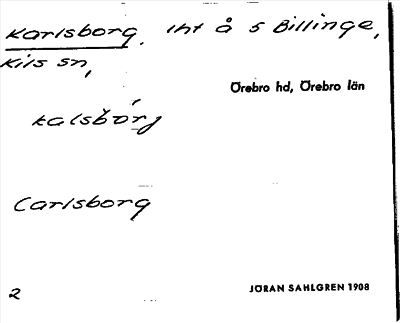 Karlsborg. lht å S Billinge,
Kils sn,
Örebro hd, Örebro län
kalsbórj
Carlsborg
2
JÖRAN SAHLGREN 1908